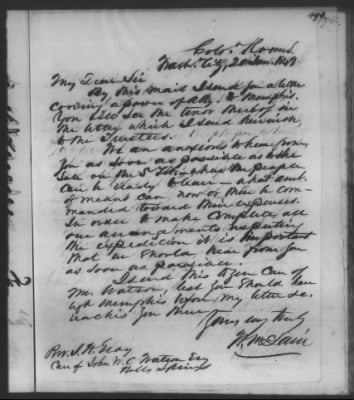 Colo. Rooms
Wash. City, 20 Jan. 1848
My Dear Sir
By this mail I send you a letter
covering a power of Atty. to Memphis.
You will see the tenor thereof in
the letter which I send herewith
to the Trustees.
We are anxious to hear from
you as soon as possible as to the
Sale of the what the people
can be ready to leave - what amt.
of means can now or then be com-
manded toward their expenses.
In order to make complete all
our arrangements respecting
the expedition it is important
that we should hear from you
as soon as possible.
I send this to you Care of
Mr. Watson, lest you should have
left Memphis before my letter &c.
reaches you there.
Yours very truly
W. McLain
Rev. J. H. Gray
Care of John W. C. Watson Esq
Holly Springs